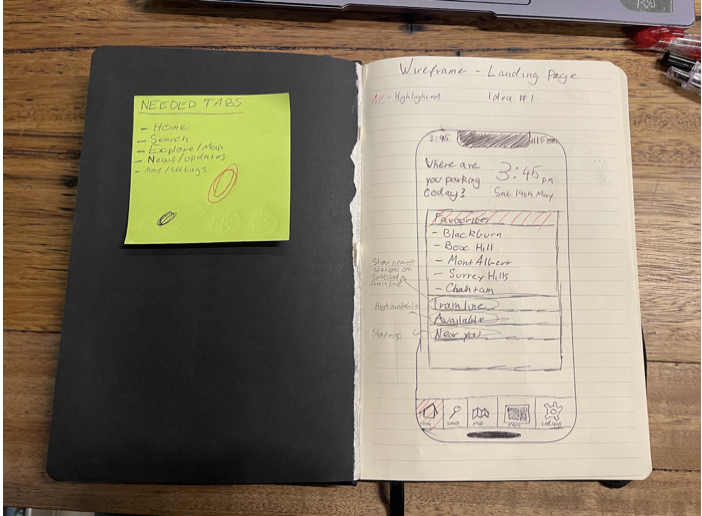 NEEDED TABS
- Home
- Search
- Explore/Map
- News/updates
- More/settings
Wireframe - Landing Page
- Highlighted
Idea #1
3:45
Where are
you parking
today?
3:45 pm
Sat 14th May
Favourites
- Blackburn
- Box Hill
- Mont Albert
- Surrey Hills
- Chatham
Show nearest
stations on
selected
train line
Trainline
High available
Available
Show map
Near you
Home
Search
Map
News
Settings